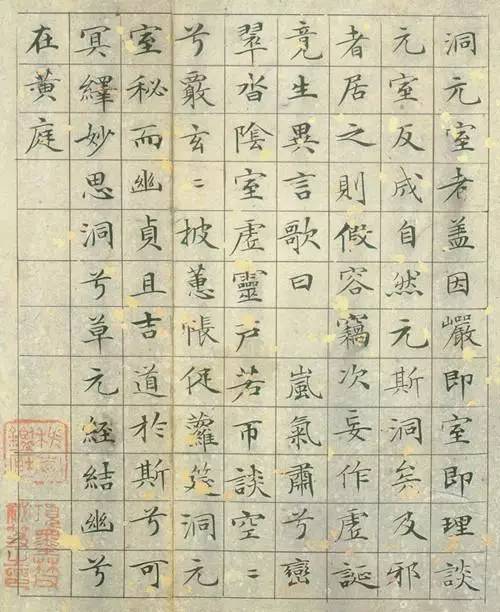 洞元室者盖因巖即室即理談
元室反成自然元斯洞矣及邪
者居之則假容竊次妄作虛誕
竟生異言歌曰嵐氣肅兮巒
翠沓陰室虛靈户若帀談空〻
兮敞玄〻披蕙帳促蘿筵洞元
室秘而幽貞且吉道於斯兮可
冥繹妙思洞兮草元經結幽兮
在黄庭